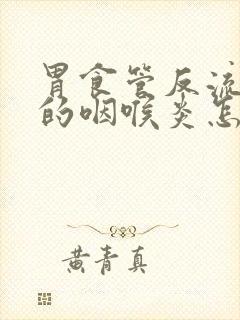 胃食管反流
的咽喉炎怎
黄青真